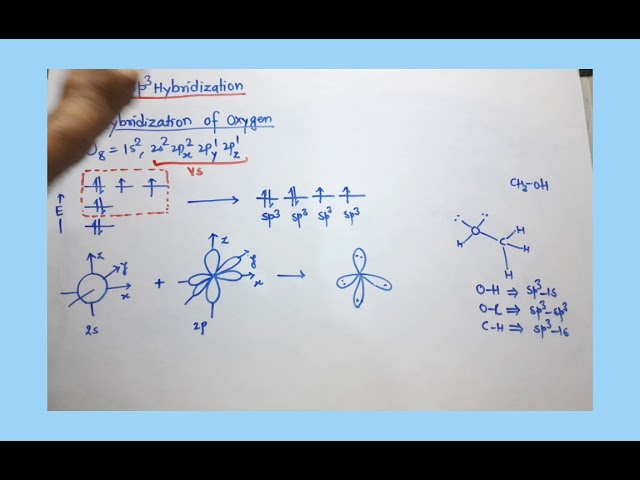 sp³ Hybridization
Hybridization of Oxygen
O₈ = 1s², 2s² 2pₓ² 2pᵧ¹ 2p_z¹
VS
E
sp³ sp³ sp³ sp³
z
y
x
2s
+
z
y
x
2p
CH₃-OH
O
H
C
H
H
H
O-H ⇒ sp³-1s
O-C ⇒ sp³-sp³
C-H ⇒ sp³-1s